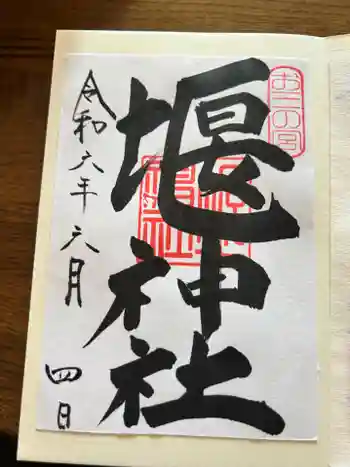 お三の宮
堰神社
令和六年六月
四日